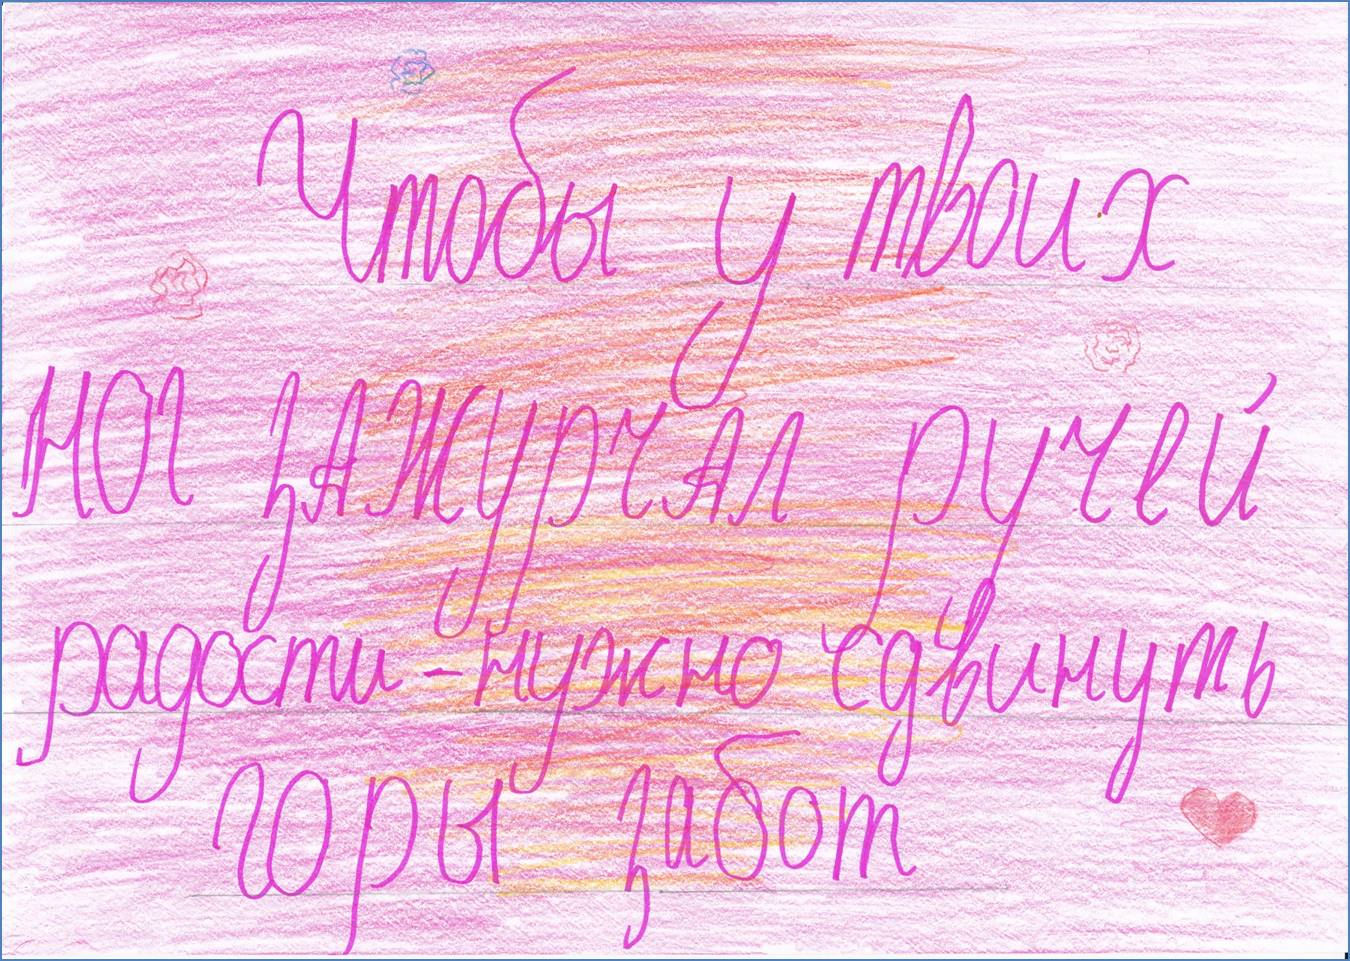 Чтобы у твоих
ног зАЖурчал ручей
радости - нужно сдвинуть
горы забот